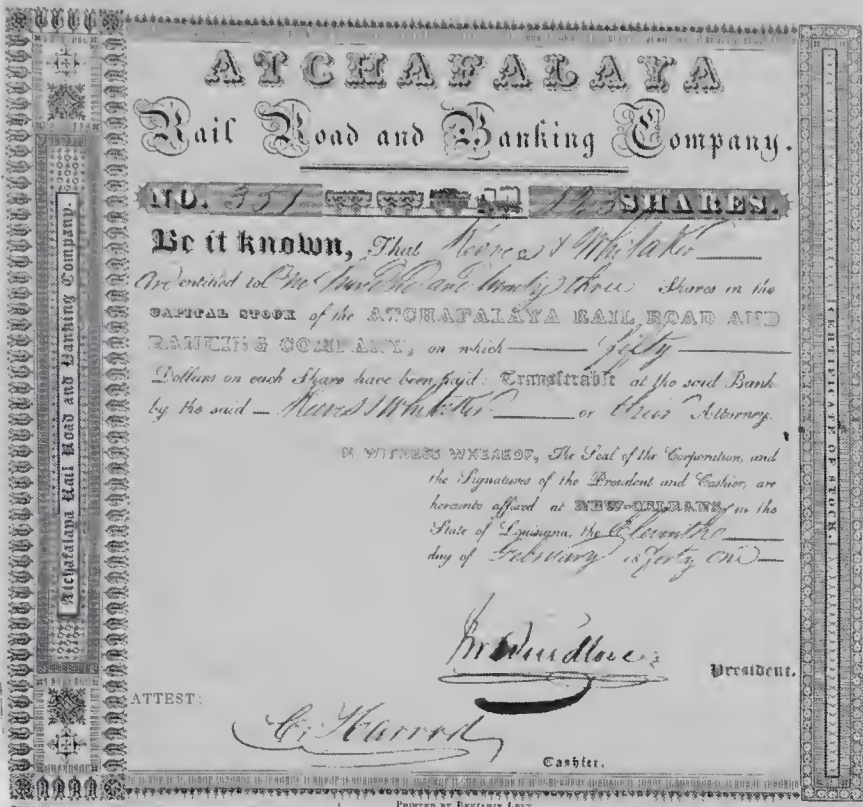 ATCHAFALAYA
Rail Road and Banking Company.
NO. 351 123 SHARES.
Be it known, That & Whitaker
Are entitled to One hundred and twenty three Shares in the
CAPITAL STOCK of the ATCHAFALAYA RAIL ROAD AND
BANKING COMPANY, on which fifty
Dollars on each Share have been paid: Transferable at the said Bank
by the said Whitaker or their Attorney.
IN WITNESS WHEREOF, The Seal of the Corporation, and
the Signatures of the President and Cashier, are
hereunto affixed at NEW-ORLEANS, in the
State of Louisiana, the Eleventh
day of February 18 forty one
President.
ATTEST:
C. Harrod
Cashier.
PRINTED BY BENJAMIN LEVY
Atchafalaya Rail Road and Banking Company.
CERTIFICATE OF STOCK.